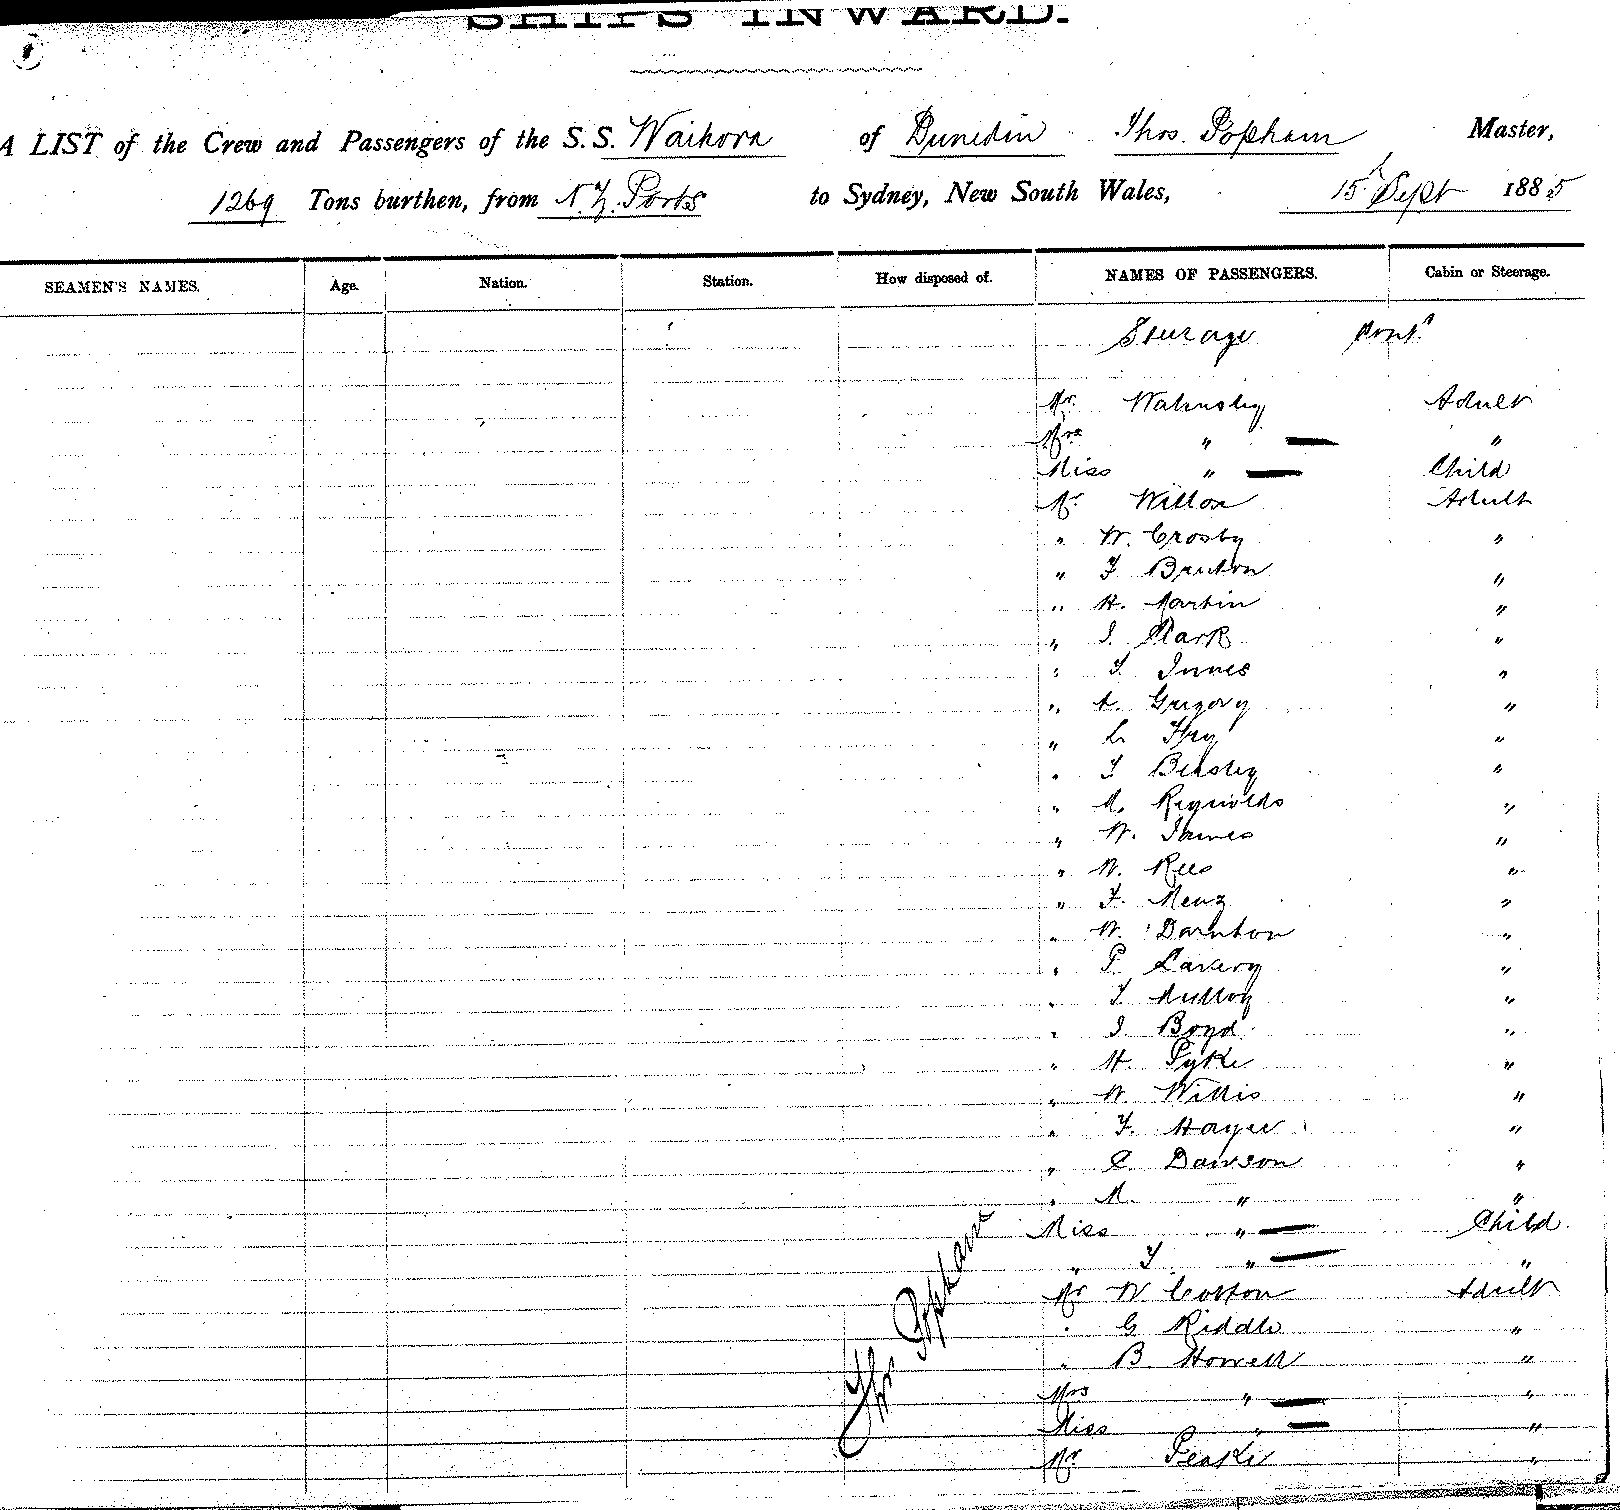 SHIPS INWARD.
A LIST of the Crew and Passengers of the S.S. Waihora of Dunedin Thos. Popham Master,
1269 Tons burthen, from N.Z. Ports to Sydney, New South Wales, 15 Sept 1885
SEAMEN'S NAMES. Age. Nation. Station. How disposed of. NAMES OF PASSENGERS. Cabin or Steerage.
Steerage Cont.d
Mr. Walmsley Adult
Mrs " — "
Miss " — Child
Mr. Adult
" W. Crosby "
" F Bruton "
" H. Martin "
" J. Clark "
" T. Innes "
" A. Gregory "
" L. Fry "
" T Beasley "
" M. Reynolds "
" W. James "
" W. Rees "
" F. Menz "
" W. Darnton "
" P. Lavery "
" T. Mulloy "
" J. Boyd "
" H. Pyke "
" W. Willis "
" F. Hayes "
" C. Dawson "
" M. " "
Miss " — Child
" T " — "
Mr W Cotton Adult
" G Riddle "
" B. Howell "
Mrs " — "
Miss " — "
Mr Peake "
Thos Popham